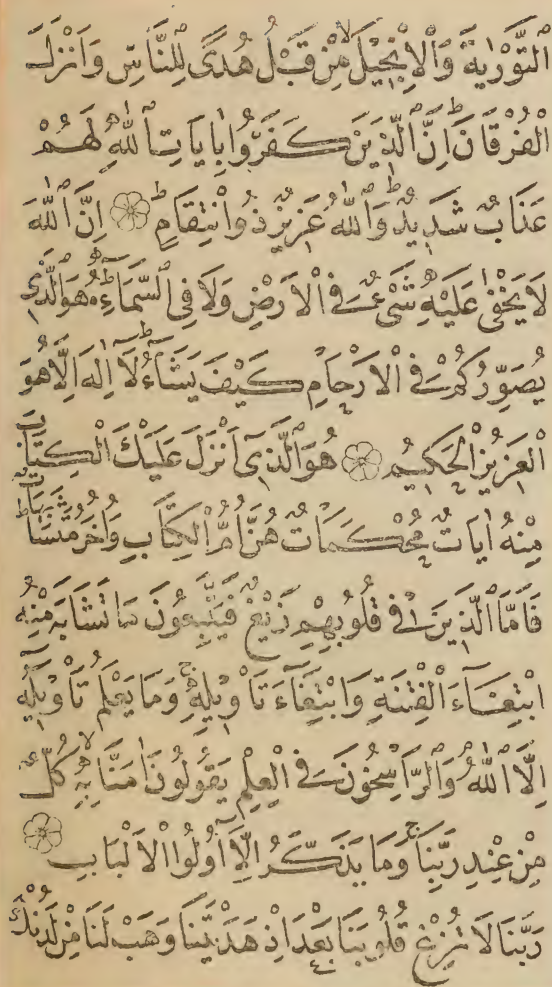 اَلتَّوْرٰيةَ وَالْاِنْجِيْلَ لا مِنْ قَبْلُ هُدًى لِلنَّاسِ وَاَنْزَلَ
الْفُرْقَانَ ط اِنَّ الَّذِيْنَ كَفَرُوْا بِاٰيَاتِ اللّٰهِ لَهُمْ
عَذَابٌ شَدِيْدٌ ط وَاللّٰهُ عَزِيْزٌ ذُوانْتِقَامٍ ط اِنَّ اللّٰهَ
لَا يَخْفٰى عَلَيْهِ شَىْءٌ فِى الْاَرْضِ وَلَا فِى السَّمَاۤءِ ط هُوَالَّذِى
يُصَوِّرُكُمْ فِى الْاَرْحَامِ كَيْفَ يَشَاۤءُ ط لَاۤ اِلٰهَ اِلَّا هُوَ
الْعَزِيْزُ الْحَكِيْمُ هُوَالَّذِىۤ اَنْزَلَ عَلَيْكَ الْكِتَابَ
مِنْهُ اٰيَاتٌ مُحْكَمَاتٌ هُنَّ اُمُّ الْكِتَابِ وَاُخَرُ مُتَشَابِهَاتٌ ط
فَاَمَّا الَّذِيْنَ فِى قُلُوْبِهِمْ زَيْغٌ فَيَتَّبِعُوْنَ مَا تَشَابَهَ مِنْهُ
ابْتِغَاۤءَ الْفِتْنَةِ وَابْتِغَاۤءَ تَاْوِيْلِهٖ ج وَمَا يَعْلَمُ تَاْوِيْلَهُۤ
اِلَّا اللّٰهُ وَالرَّاسِخُوْنَ فِى الْعِلْمِ يَقُوْلُوْنَ اٰمَنَّا بِهٖ لا كُلٌّ
مِنْ عِنْدِ رَبِّنَا ج وَمَا يَذَّكَّرُ اِلَّاۤ اُوْلُوا الْاَلْبَابِ
رَبَّنَا لَا تُزِغْ قُلُوْبَنَا بَعْدَ اِذْ هَدَيْتَنَا وَهَبْ لَنَا مِنْ لَدُنْكَ